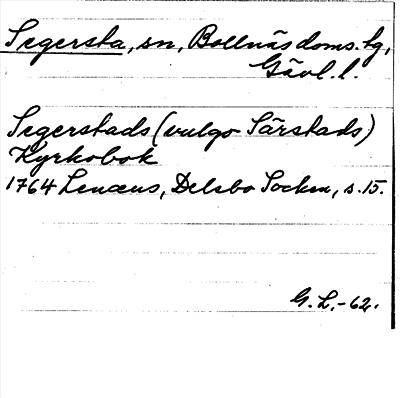 Segersta, sn, Bollnäs doms.tg,
Gävl. l.
Segerstads (vulgo Särstads)
Kyrkobok
1764 Lenæus, Delsbo Socken, s. 15.
G. L. -62.